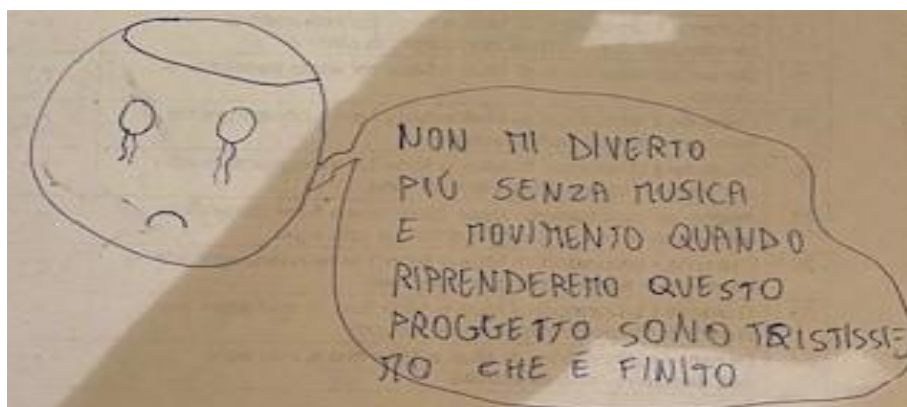 NON MI DIVERTO
PIÚ SENZA MUSICA
E MOVIMENTO QUANDO
RIPRENDEREMO QUESTO
PROGGETTO SONO TRISTISSI=
MO CHE É FINITO